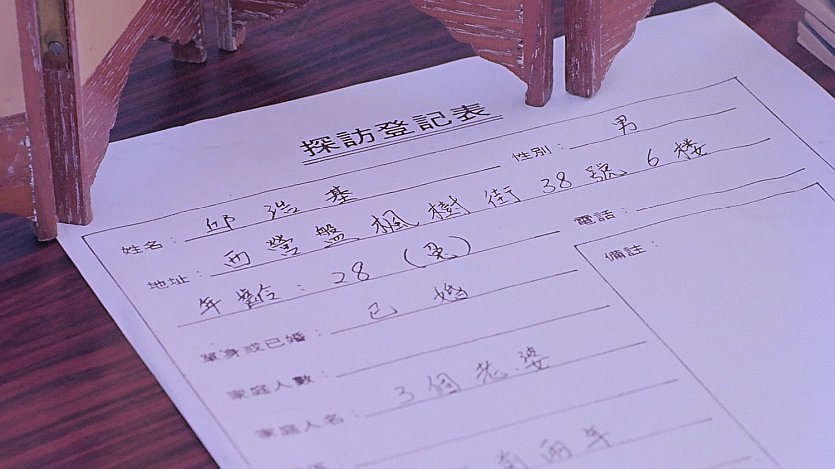 探訪登記表
姓名：邱浩基 性別：男
地址：西營盤楓樹街38號6楼
年齡：28（兔） 電話：
單身或已婚：已婚 備註：
家庭人數：
家庭人名：3個老婆
兩年